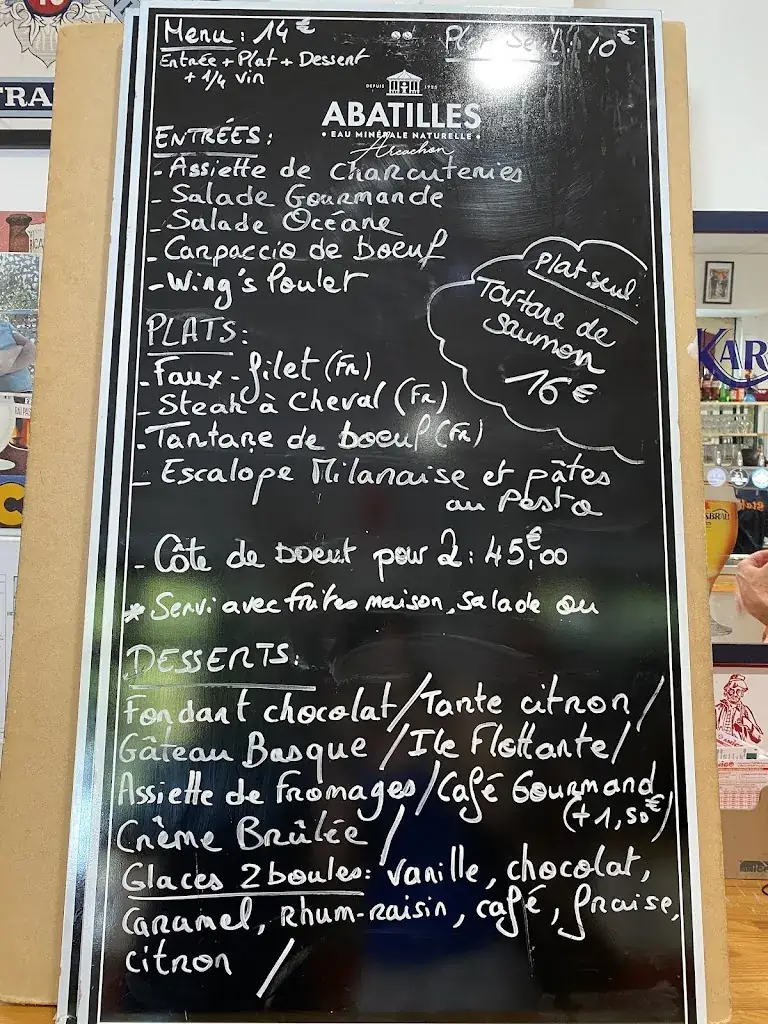 Menu : 14€
Plat Seul : 10€
Entrée + Plat + Dessert
+ 1/4 vin
DEPUIS 1925
ABATILLES
• EAU MINÉRALE NATURELLE •
Arcachon
ENTRÉES :
- Assiette de charcuteries
- Salade Gourmande
- Salade Océane
- Carpaccio de boeuf
- Wing's Poulet
Plat seul :
Tartare de
saumon
16€
PLATS :
- Faux-filet (Fr)
- Steak à Cheval (Fr)
- Tartare de boeuf (Fr)
- Escalope Milanaise et pâtes
au Pesto
- Côte de boeuf pour 2 : 45€,00
* Servi avec frites maison, salade ou
DESSERTS :
Fondant chocolat / Tarte citron /
Gâteau Basque / Ile Flottante /
Assiette de Fromages / Café Gourmand
(+1,50€)
Crème Brûlée /
Glaces 2 boules : vanille, chocolat,
Caramel, rhum-raisin, café, fraise,
citron /
TRA
KAR